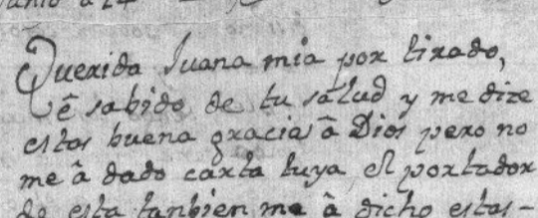 Querida Juana mia por tirado,
ê sabido de tu salud y me dize
estas buena gracias â Dios pero no
me â dado carta tuya el portador
de esta tanbien me â dicho estas-